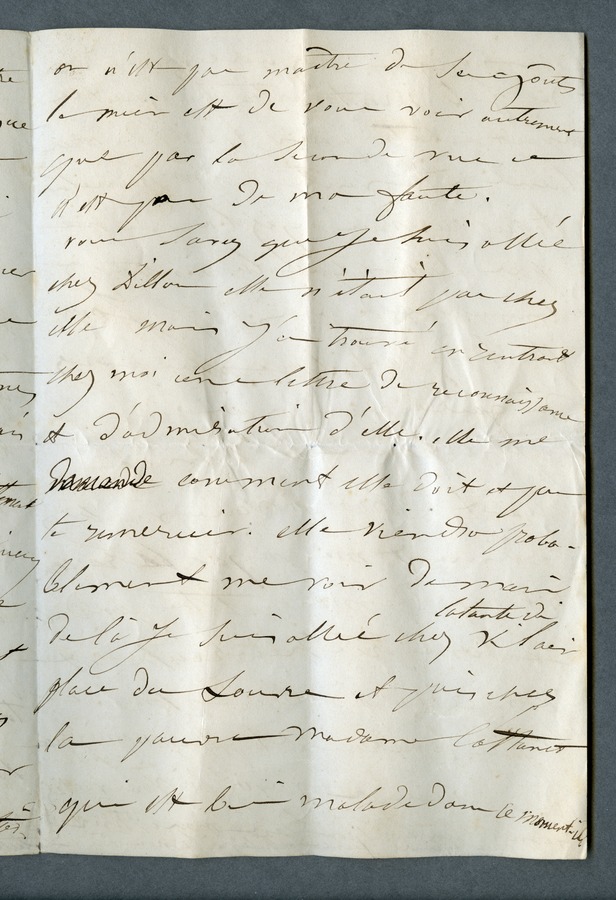 on n'est pas maître de ses goûts
le mien est de vous voir autrement
que par la seconde vue ce
n'est pas de ma faute.
vous savez que je suis allée
chez Dillon elle n'était pas chez
elle mais j'ai trouvé en rentrant
chez moi une lettre de reconnaissance
et d'admiration d'elle. elle me
demande comment elle doit et peut
te remercier. elle viendra proba-
blement me voir demain
la tante de
de là je suis allée chez Klair
place du Louvre et puis chez
la pauvre madame
qui est bien malade dans ce moment-ci